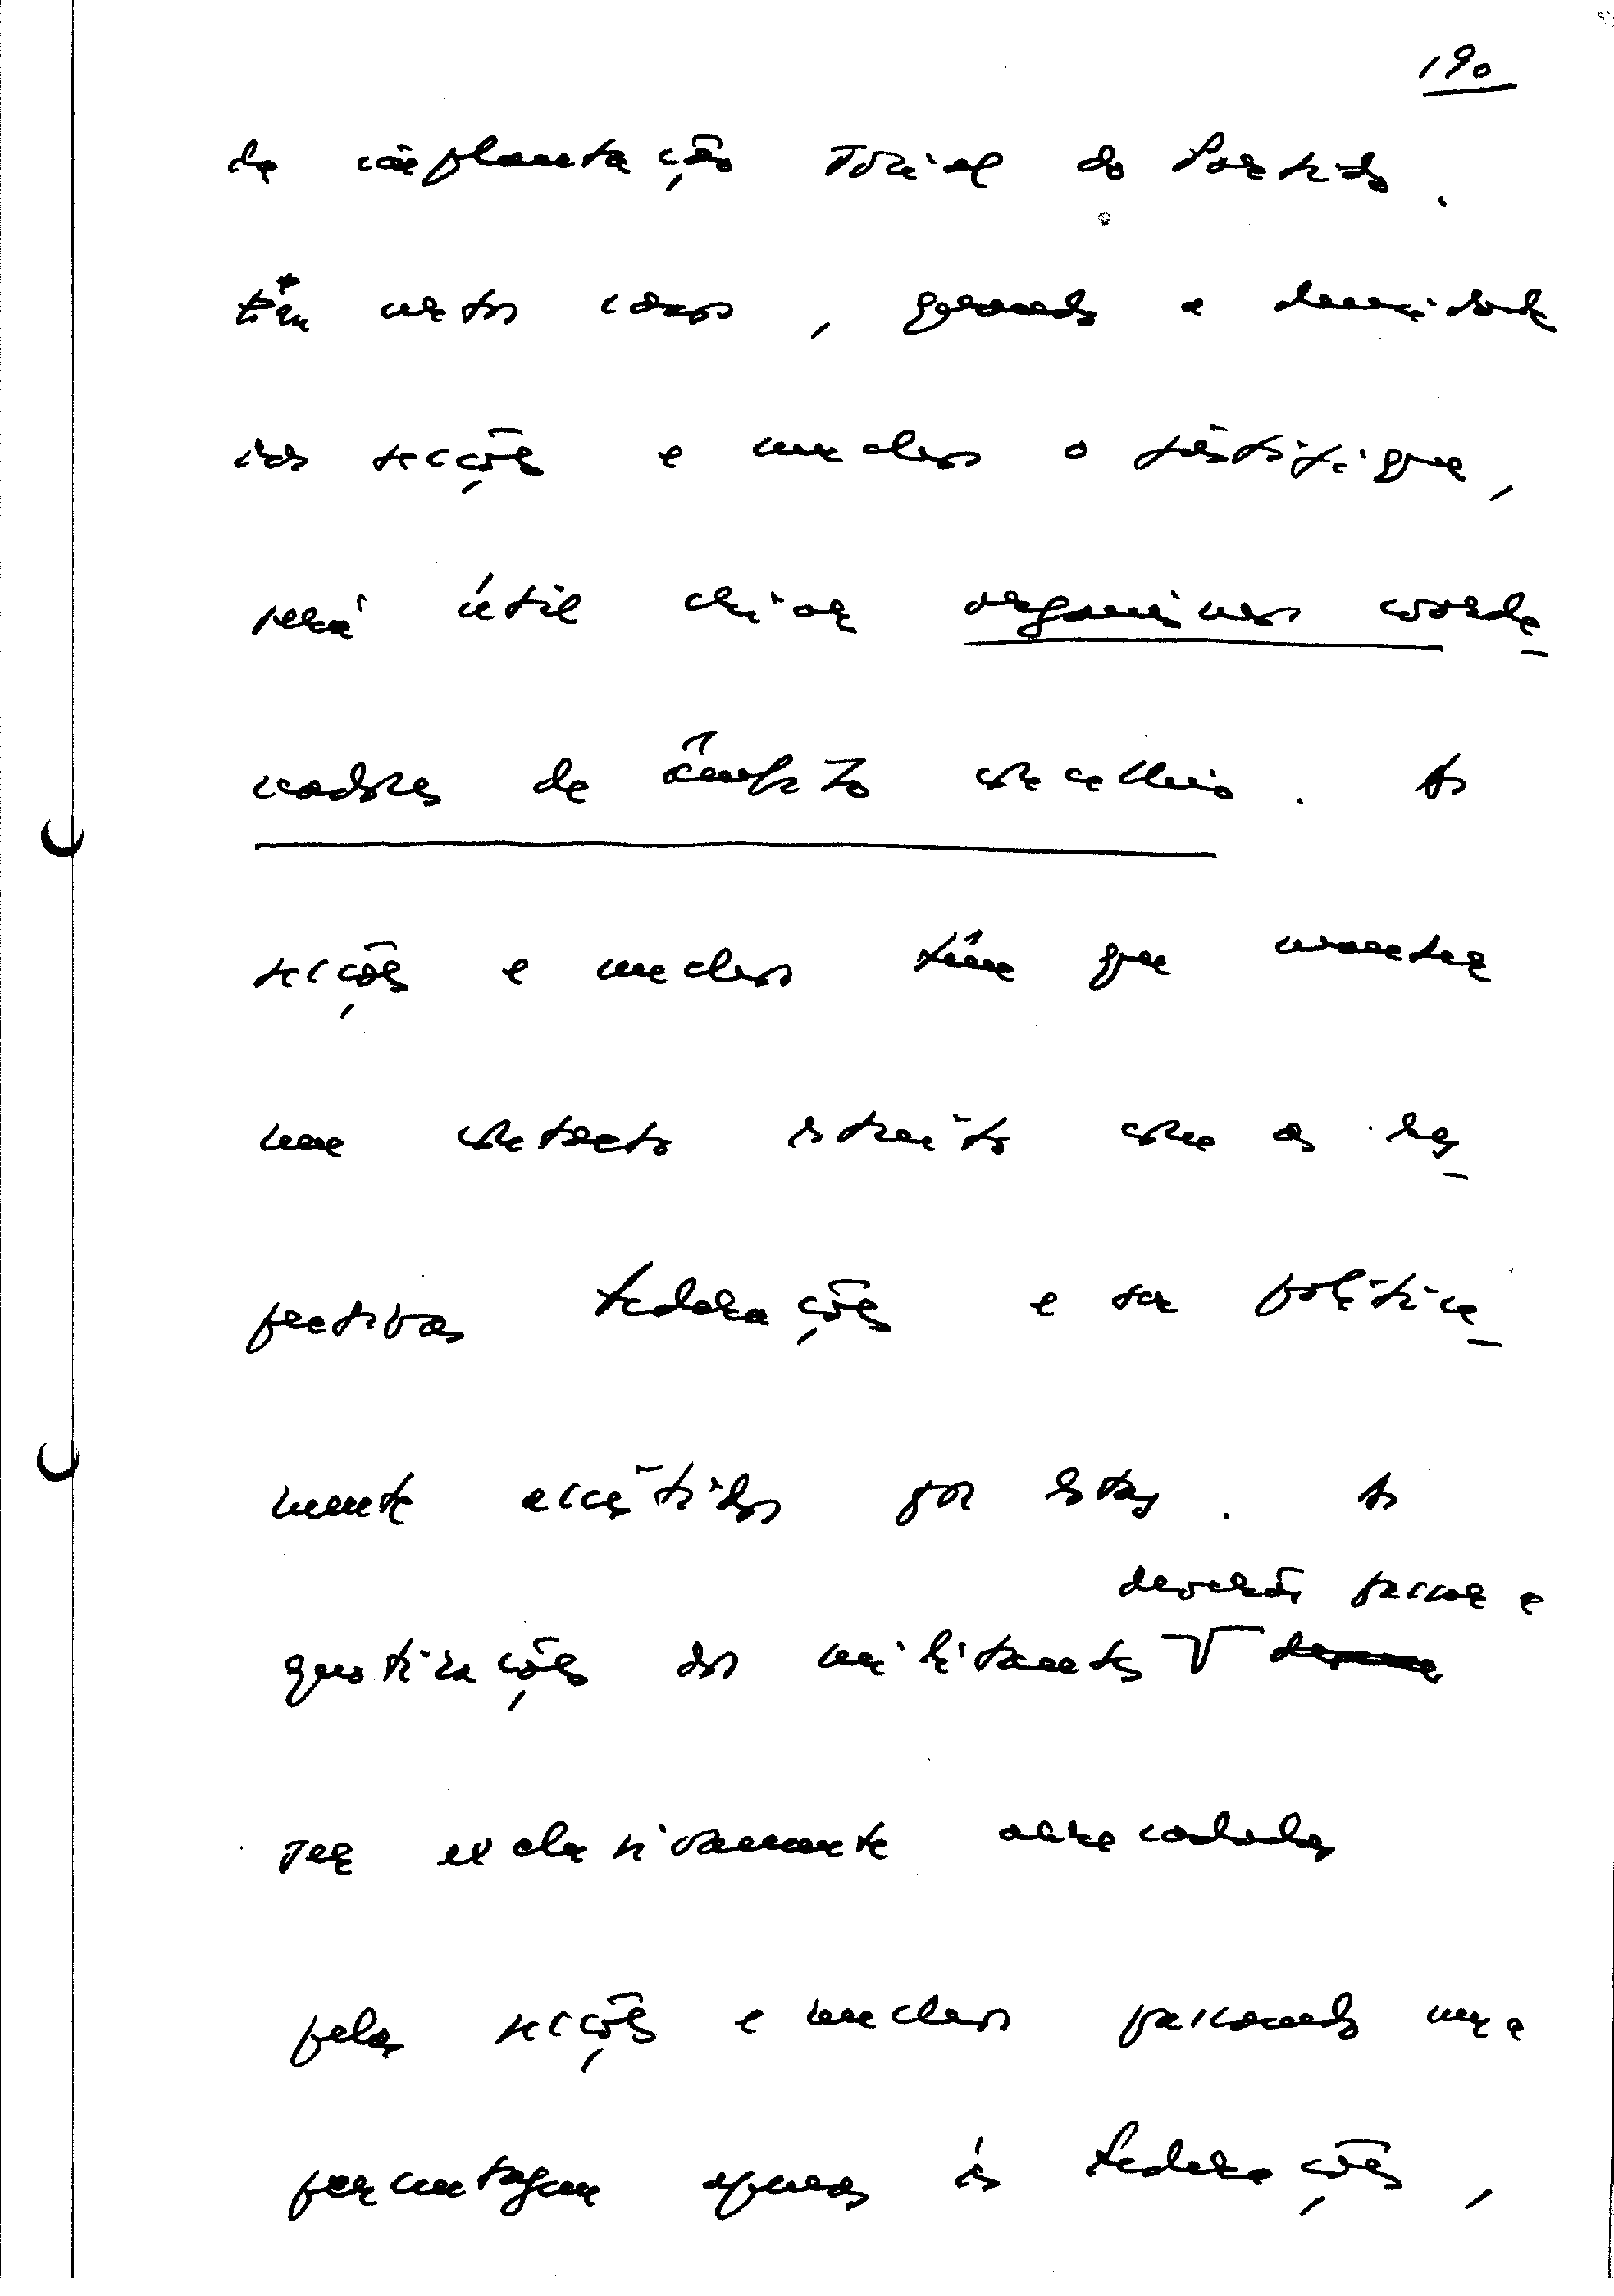 190
da implantação social do Partido.
Em certos casos, quando a densidade
das secções e nucleos o justifique,
será útil criar organismos coorde-
nadores de âmbito concelhio. As
secções e nucleos têm que manter
um contacto estreito com as res-
pectivas federações e ser politica-
mente assistidos por estas. As
deverão passar a
quotizações dos militantes
ser exclusivamente arrecadadas
pelas secções e nucleos passando uma
percentagem apenas às federações,